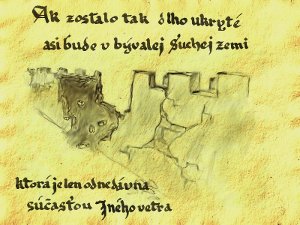 Ak zostalo tak dlho ukryté
asi bude v bývalej Suchej zemi
ktorá je len odnedávna
súčasťou Iného vetra